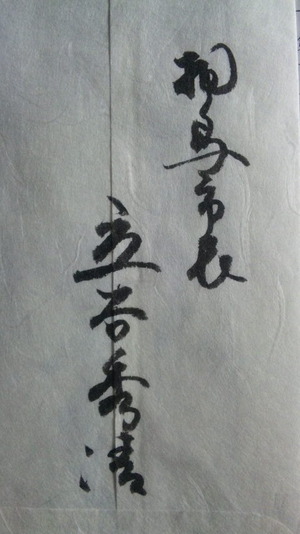 相馬市長
立谷秀清